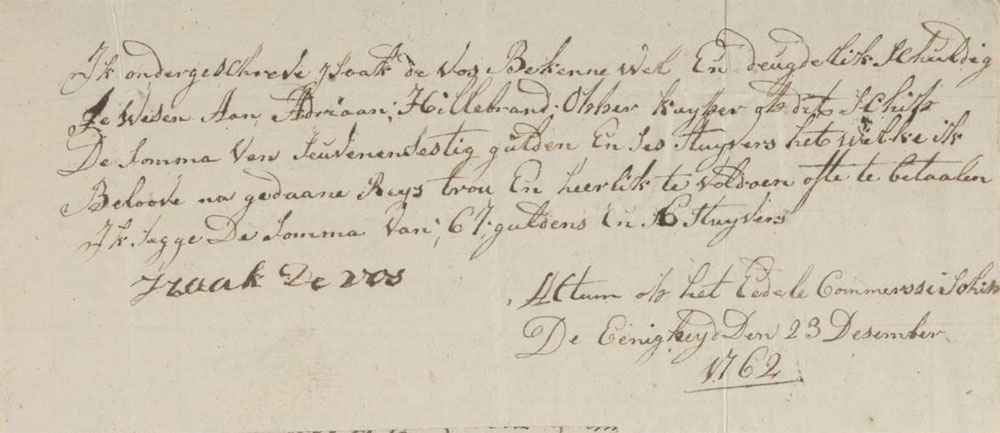 Ik ondergeschreve Isaak de vos Bekenne wel En deugdelik Schuldig
Te Wesen Aan, Adriaan; Hillebrand: Opper kuyper op dit Schip
De Somma Van Seuvenensestig gulden En Ses Stuyvers het Welke ik
Beloove na gedaane Reys trou En heerlik te voldoen ofte te betaalen
Ik Segge De Somma Van; 67; guldens En 6 Stuyvers
Izaak De vos
Actum op het Eedele Commerssi Schip
De Eenigheyd Den 23 Desember
1762